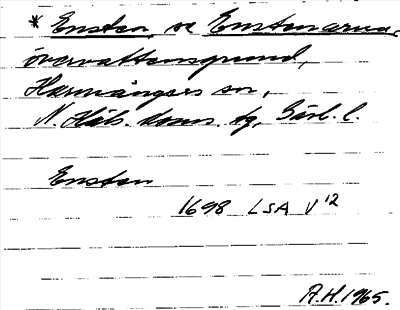 * Ensten, se Enstenarna,
övervattensgrund,
Harmångers sn,
N. Häls. doms. tg, Gävl. l.
Ensten
1698 LSA V 12
R.H. 1965.